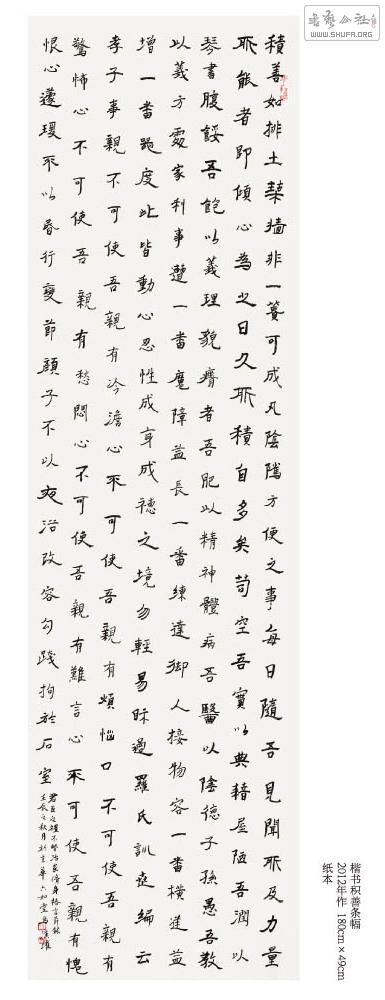 书艺公社
WWW.SHUFA.ORG
積善如排土築墻非一簣可成凡陰隲方便之事每日隨吾見聞所及力量
所能者即傾心為之日久所積自多矣苟空吾實以典籍屋陋吾潤以
琴書腹餒吾飽以義理貌癠者吾肥以精神體病吾醫以陰德子孫愚吾教
以義方處家利事遭一番魔障益長一番練達御人接物容一番橫逆益
增一番器度此皆動心忍性成身成德之境勿輕易昧過羅氏訓世編云
孝子事親不可使吾親有冷澹心不可使吾親有煩惱口不可使吾親有
驚怖心不可使吾親有愁悶心不可使吾親有難言心不可使吾親有愧
恨心蘧瑗不以昏行變節顏子不以夜浴改容勾踐拘於石室
君臣之禮不
壬辰之秋月
楷书积善条幅
2012年作 180cm×49cm
纸本